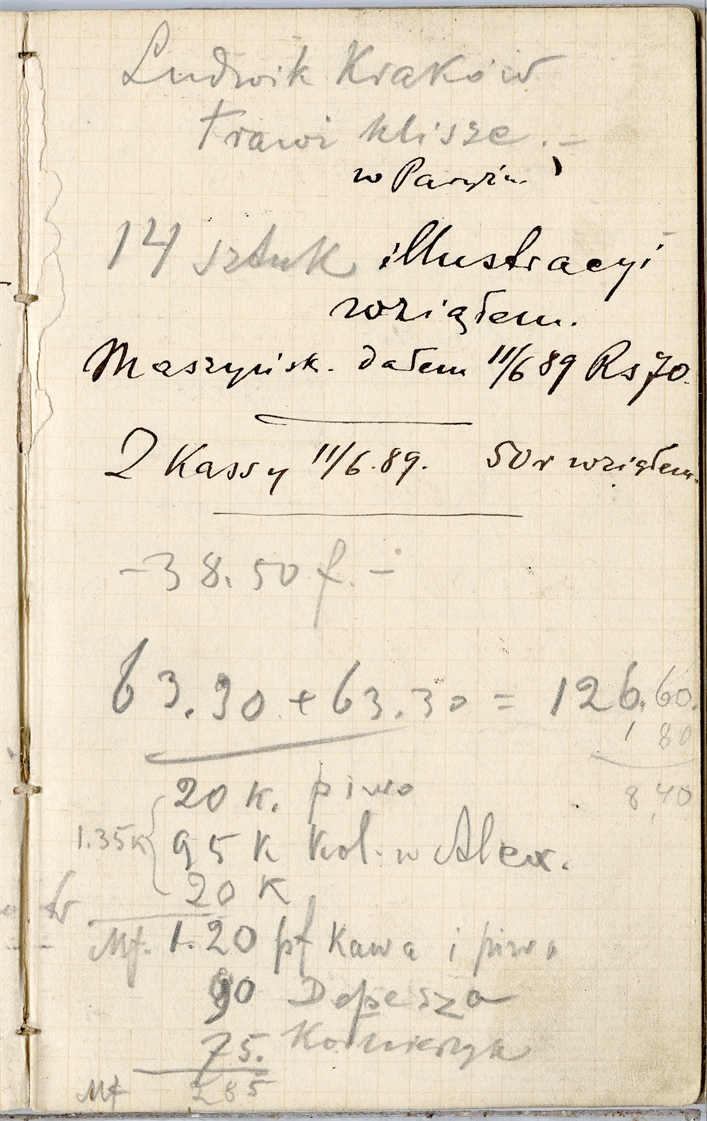 Ludwik Kraków
trawi klisze. –
w Paryżu
14 sztuk illustracyi
wziąłem.
Maszyńsk. dałem 11/6 89 Rs 70.
Z Kassy 11/6.89. 50 r wziąłem.
– 38.50 f. –
63.30 + 63.30 = 126.60.
1 80
8,40
20 K. piwo
1.35 K { 95 K Kol. w Alex.
20 K
Mf. 1.20 pf Kawa i piwo
90 Depesza
75. Kołnierzyk
Mf 285